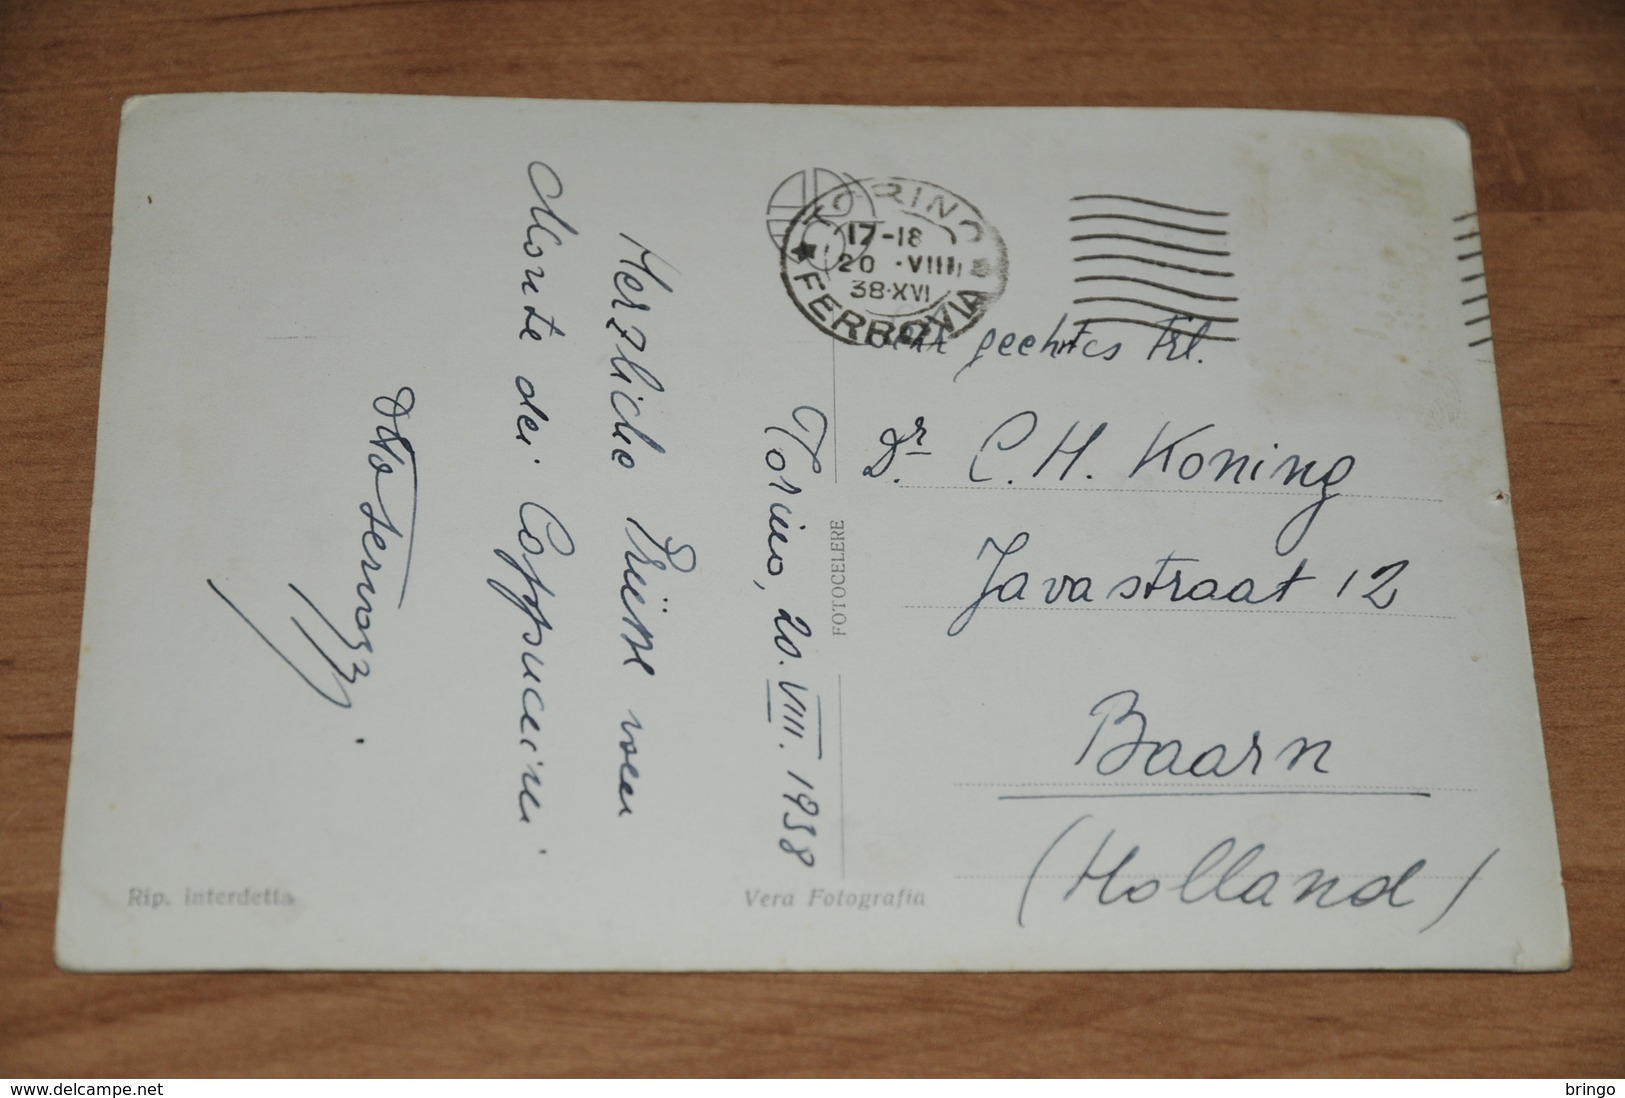 Torino, 20.VIII.1938
Herzliche Grüsse vom
Monte dei Cappuccini
TORINO
17-18
20 ·VIII
38·XVI
FERROVIA
Sehr geehrtes Frl.
Dr. C. H. Koning
Javastraat 12
Baarn
(Holland)
FOTOCELERE
Rip. interdetta
Vera Fotografia
https://www.delcampe.net
bringo